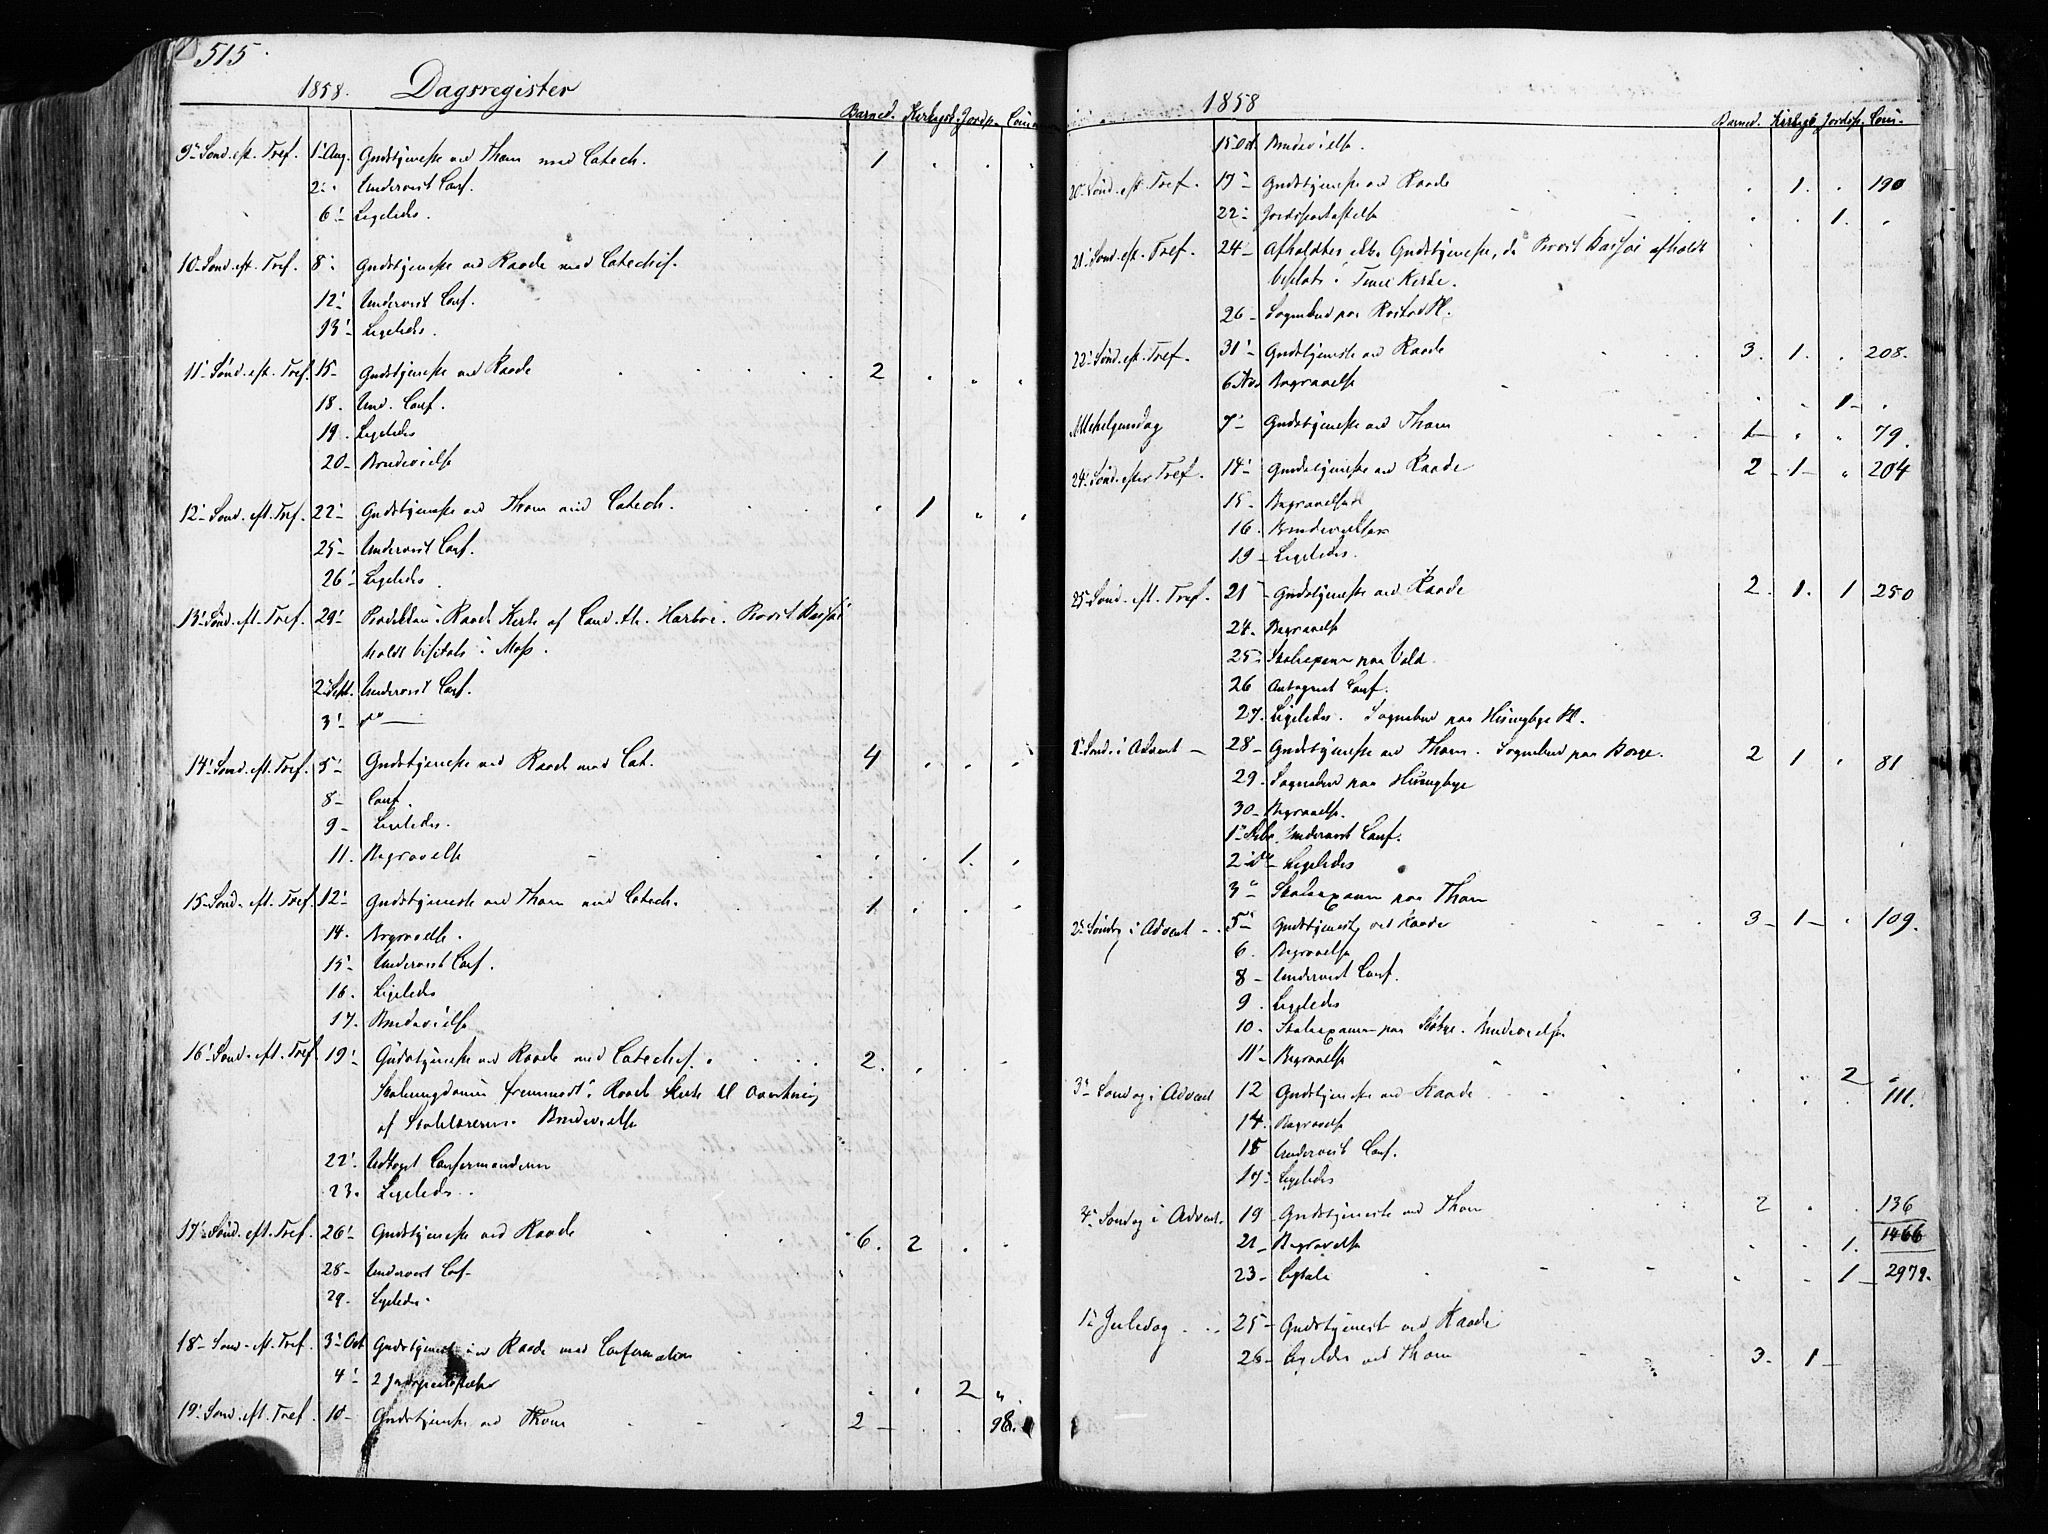 515.
1858. Dagsregister
Barned. Kirkegd. Jordp. Com
9de Sønd. eft. Tref. 1 Aug. Gudstjeneste ved Thom med Catech. 1 " " "
2 - Undervist Conf.
6 - Ligeledes.
10 - Sønd. eft. Tref. 8 - Gudstjeneste ved Raade med Catechis.
12 - Undervist Conf.
13 - Ligeledes.
11 - Sønd. eft. Tref. 15 - Gudstjeneste ved Raade 2 " " "
18. Und. Conf.
19. Ligeledes
20 - Brudevielse
12 - Sønd. eft. Tref. 22 - Gudstjeneste ved Thom med Catech. " 1 " "
25 - Undervist Conf.
26 - Ligeledes.
13 - Sønd. eft. Tref. 29 - Raade Kirke af Cand. th. Provst
holdt Visitats i Moss.
2 Sept. Undervist Conf.
3 - do
14 - Sønd. eft. Tref. 5 - Gudstjeneste ved Raade med Cat. 4 " " "
8 - Conf.
9 - Ligeledes.
11. Begravelse " " 1. "
15 - Sønd. eft. Tref. 12 - Gudstjeneste ved Thom med Catech. 1 " " "
14. Begravelse.
15 - Undervist Conf.
16. Ligeledes
17. Brudevielse
16 - Sønd. eft. Tref. 19 - Gudstjeneste ved Raade med Catechis. 2. " " "
Skoleungdommen fremmødt i Raade Kirke til
af Skolelæreren. Brudevielse
22 - Udtaget Confirmanderne
23. Ligeledes.
17 - Sønd. eft. Tref. 26 - Gudstjeneste ved Raade 6. 2 " "
28 - Undervist Conf.
29. Ligeledes.
18 - Sønd. eft. Tref. 3 Oct Gudstjeneste ved Raade med Confirmation
4 - 2 Jordpaakastelser " " 2 "
19 - Sønd. eft. Tref. 10 - Gudstjeneste ved Thom 2 - " " 98.
1858
Barned. Kirkegd Jordp. Com.
15 Oct. Brudevielse.
20 - Sønd. eft. Tref. 17 - Gudstjeneste ved Raade " 1. " 190
22 - Jordpaakastelse " " 1. "
21 - Sønd. eft. Tref. 24 - Afholdtes ikke Gudstjeneste, da Provst afholdt
Visitats i Kirke.
26 - Sognebud paa Pl.
22 - Sønd. eft. Tref. 31 - Gudstjeneste ved Raade 3. 1. " 208.
6 Nov Begravelse " " 1 - "
Allehelgensdag 7 - Gudstjeneste ved Thom 1 - " " 79.
24 - Sønd. efter Tref. 14 - Gudstjeneste ved Raade 2 - 1 - " 204
15 - Begravelse
16. Brudevielser
19 - Ligeledes.
25 - Sønd. eft. Tref. 21 - Gudstjeneste ved Raade 2. 1. 1 250
24. Begravelse
25 - Skoleexamen paa Vold.
26 Antegnet Conf.
27. Ligeledes. Sognebud paa Husugbye Pl.
1 Sønd. i Advent - 28 - Gudstjeneste ved Thom. Sognebud paa Borge. 2 1 " 81
29. Sognebud paa Husugbye
30 - Begravelse.
1 Decbr. Undervist Conf.
2 do - Ligeledes
3 - Skoleexamen paa Thom
2 - Søndag i Advent - 5 - Gudstjeneste ved Raade 3 - 1 - " 109.
6. Begravelse
8 - Undervist Conf.
9. Ligeledes
10. Skoleexamen paa Brudevielse
11 - Begravelse " " 2 "
3 - Søndag i Advent 12 Gudstjeneste ved Raade " " " 111.
14. Begravelse
15 Undervist Conf.
17 - Ligeledes
4 - Søndag i Advent. 19 - Gudstjeneste ved Thom 2 " " 136
21 - Begravelse " " 1. 1466
23 - Ligtale " " 1 - 2979.
1 - Juledag 25 - Gudstjeneste ved Raade
26 - Ligeledes ved Thom 3. 1 -